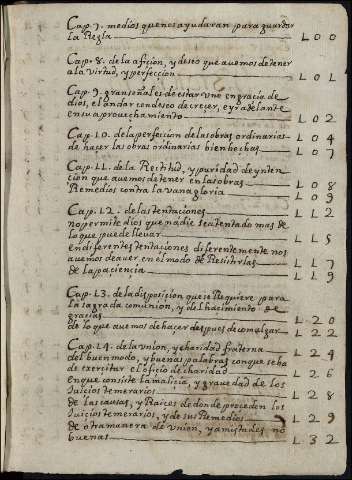 Cap. 7. medios que nos ayudaran para guardar
la Regla L00
Cap. 8. de la aficion, y deseo que auemos de tener
a la virtud, y perfeccion L01
Cap. 9. gran señal es de estar uno en gracia de
dios, el andar con deseo de crecer, e yr adelante
en su aprovechamiento L02
Cap. L0. de la perfeccion de las obras ordinarias L04
de hacer las obras ordinarias bien hechas L07
Cap. LL. de la Rectitud, y puridad de ynten
cion que auemos de tener en las obras L08
Remedios contra la vana gloria L09
Cap. L2. de las tentaciones LL2
no permite dios que nadie sea tentado mas de
lo que puede lleuar LL5
en diferentes tentaciones diferentemente nos
auemos de auer en el modo de Resistirlas LL7
de la paciencia LL9
Cap. L3. de la disposicion que se Requiere para
la sagrada comunion, y del hacimiento de
gracias L20
de lo que auemos de hacer despues de comulgar L22
Cap. L4. de la union, y charidad fraterna L24
del buen modo, y buenas palabras con que se ha
de exercitar el oficio de charidad L26
en que consiste la malicia, y grauedad de los
Juicios temerarios L28
de las causas, y Raices de donde proceden los
Juicios temerarios, y de sus Remedios L29
de otra manera de union, y amistades no
buenas L32